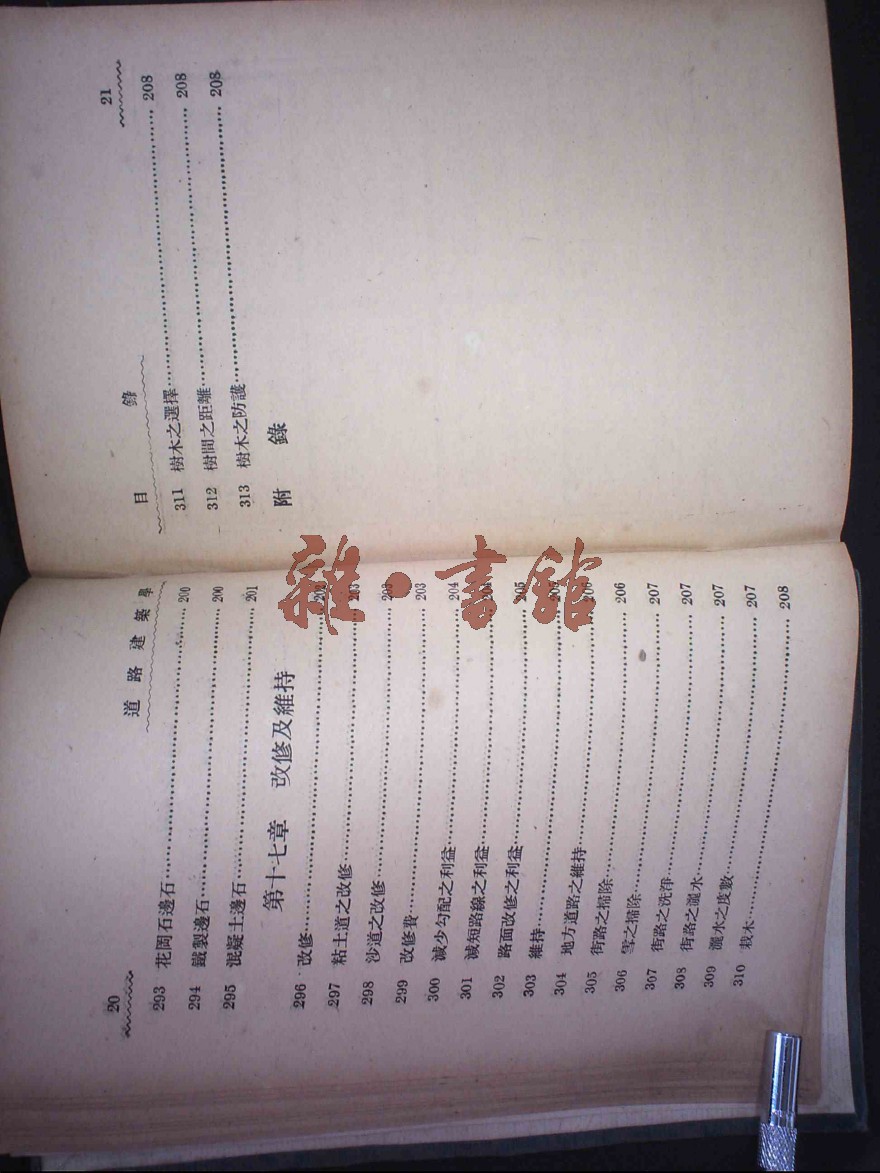 20 道路建築學
293 花岡石邊石 200
294 鐵製邊石 200
295 混凝土邊石 201
第十七章 改修及維持
296 改修 202
297 粘土道之改修 203
298 沙道之改修 203
299 改修費 203
300 減少勾配之利益 204
301 減短路線之利益 204
302 路面改修之利益 205
303 維持
304 地方道路之維持
305 街路之掃除 206
306 雪之掃除 207
307 街路之洗淨 207
308 街路之灑水 207
309 灑水之度數 207
310 栽木 208
目錄 21
311 樹木之選擇 208
312 樹間之距離 208
313 樹木之防護 208
附錄
書館